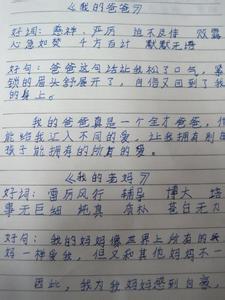 《我的爸爸》
好词：慈祥、严厉 迫不及待
心急如焚 千方百计 默默无语
好句：爸爸这句话让我松了口气，紧
锁的眉头舒展开了，自信又回到了我
的身上。
我的爸爸真是一个全才爸爸，他
能给我注入不同的爱，让我拥有别的
孩子能拥有的所有的爱。
《我的老妈》
好词：雷厉风行 辅导 博大
事无巨细 纯真 质朴 苍白无力
好句：我的妈妈像世界上所有的
妈一样爱我，但又和其他妈妈不一
因此，我为我妈妈感到自豪，